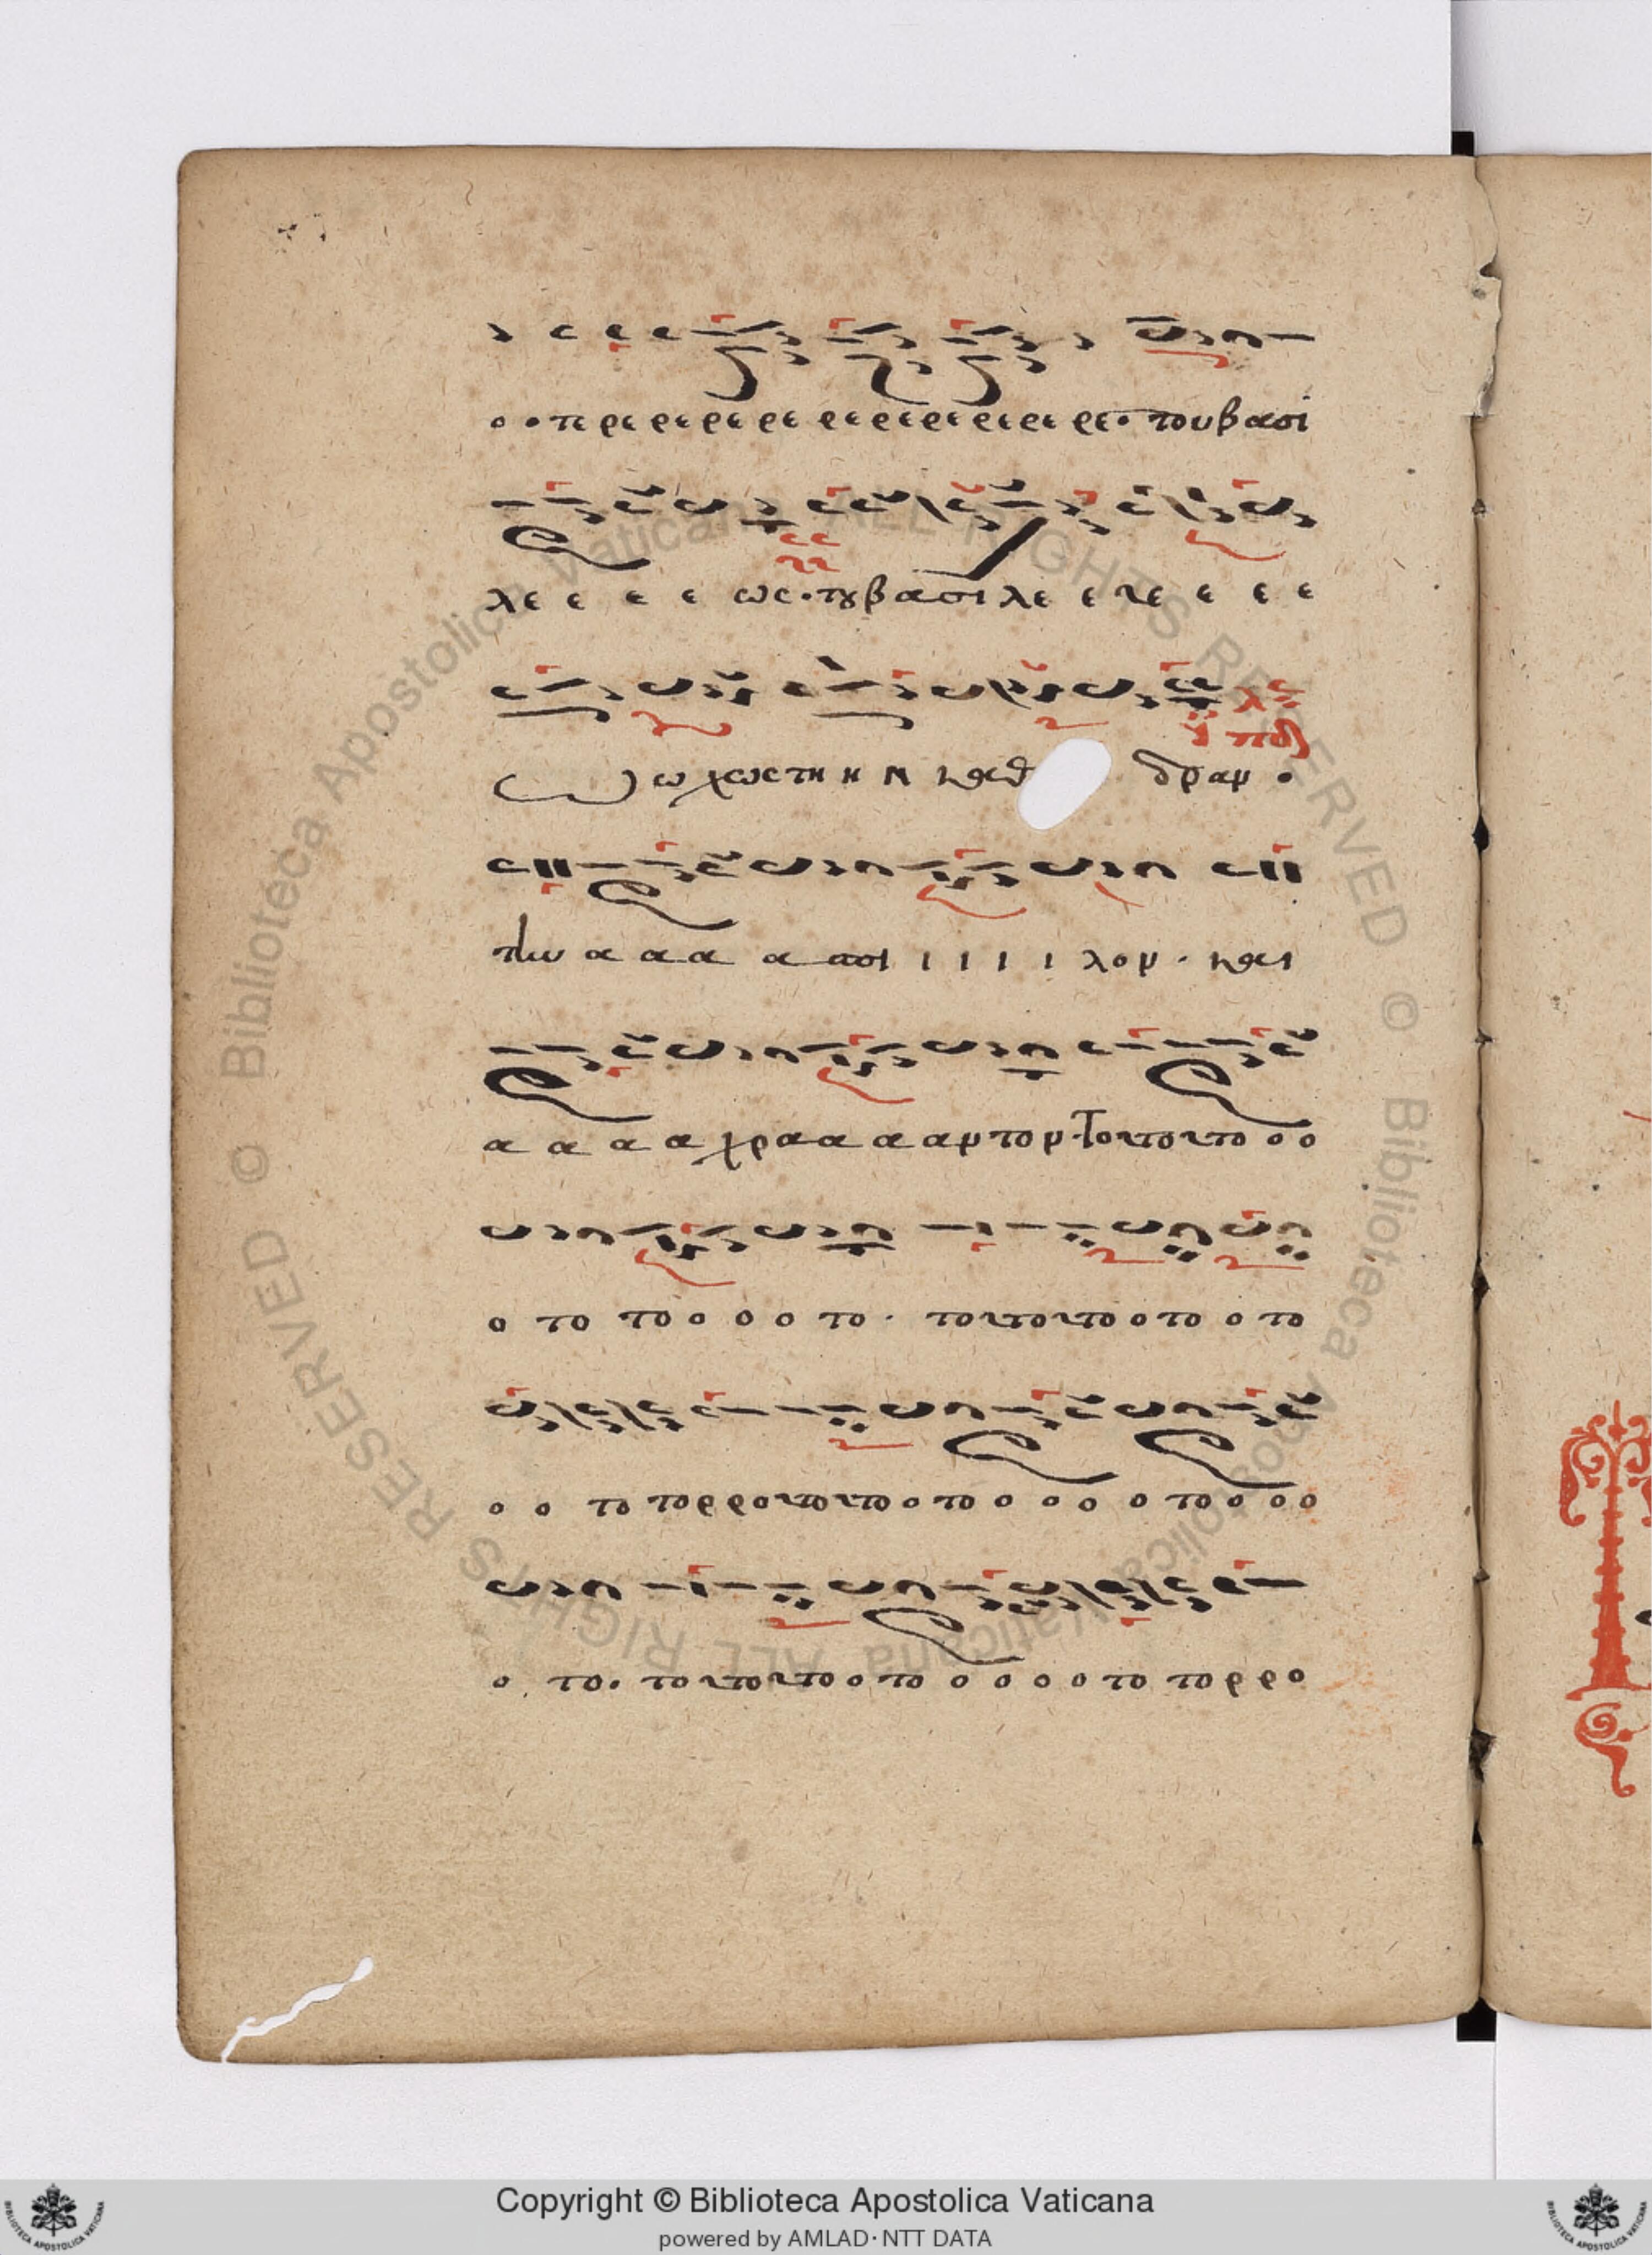 ο ο πε ρε ρε ρε ρε ρε ε ε ρε ρε ε ρε ρε · του βασι
λε ε ε ε ως · τȣ βασι λε ε χε ε ε ε
ω χωστη η η καθ δραν ·
την α α α α ασι ι ι ι ι λον · και
α α α α χρα α α αν τον · Το το το ο ο
ο το το ο ο ο το · το το το ο το ο το
ο ο το τορρο το το ο το ο ο ο ο το ο ο ο
ο το · το το το ο το ο ο ο ο το τορρο
© Biblioteca Apostolica Vaticana ALL RIGHTS RESERVED
© Biblioteca Apostolica Vaticana ALL RIGHTS RESERVED
Copyright © Biblioteca Apostolica Vaticana
powered by AMLAD · NTT DATA